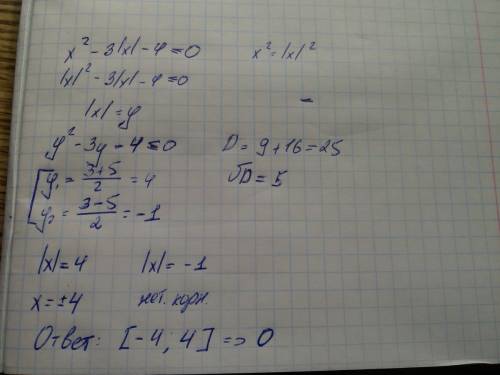 x² - 3|x| - 4 = 0    x² = |x|²
|x|² - 3|x| - 4 = 0
|x| = y
y² - 3y - 4 = 0    D = 9 + 16 = 25
y₁ = (3+5)/2 = 4    √D = 5
y₂ = (3-5)/2 = -1
|x| = 4    |x| = -1
x = ±4    нет. корн.
Ответ: [-4; 4] => 0